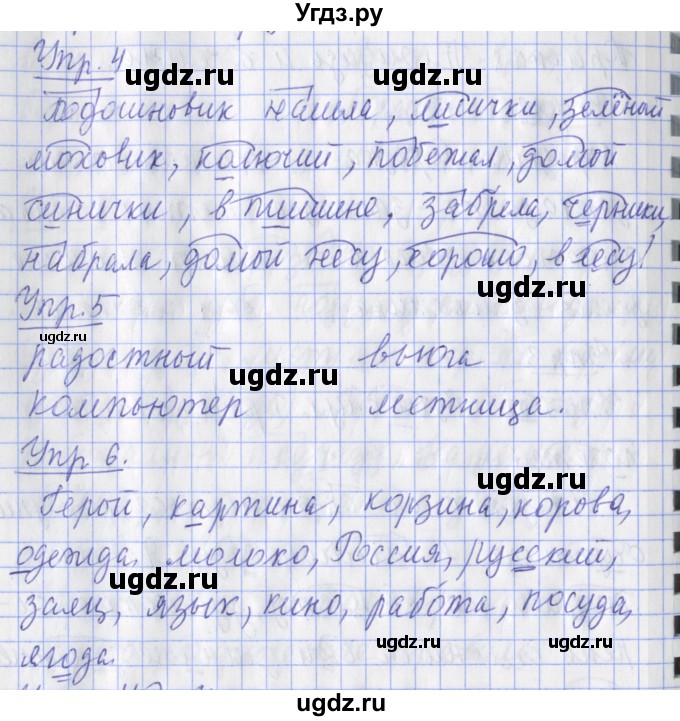 Угдз.ру
Упр. 4
Подошновик нашла, лисички, зелёный
моховик, колючий, побежал, домой
синички, в тишине, забрела, черники,
набрала, домой несу, хорошо, в лесу!
Упр. 5
радостный вьюга
компьютер лестница.
Упр 6.
Герой, картина, корзина, корова,
одежда, молоко, Россия, русский,
заяц, язык, кино, работа, посуда,
ягода.
ugdz.ru
ugdz.ru
ugdz.ru
ugdz.ru
ugdz.ru
ugdz.ru
ugdz.ru
ugdz.ru
ugdz.ru
ugdz.ru
ugdz.ru